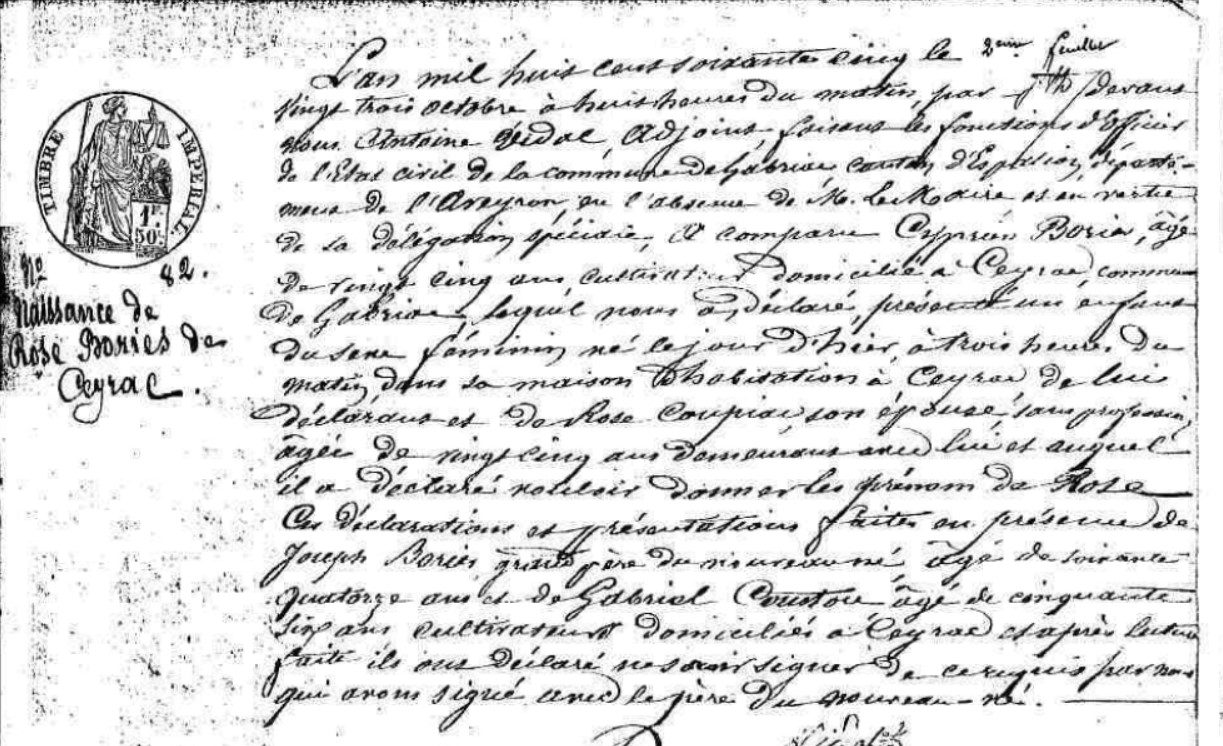 2eme feuillet
L'an mil huit cent soixante cinq le
vingt trois octobre à huit heures du matin, par devant
nous Antoine Vidal, Adjoint, faisant les fonctions d'Officier
de l'Etat civil de la commune de Gabriac canton d'Espalion, départe-
ment de l'Aveyron, en l'absence de M. le Maire et en vertu
de sa délégation spéciale, A comparu Cyprien Bories, âgé
de vingt cinq ans, cultivateur domicilié à Ceyrac commune
de Gabriac, lequel nous a déclaré, présenté un enfant
du sexe féminin né le jour d'hier, à trois heures du
matin dans sa maison d'habitation à Ceyrac de lui
déclarant et de Rose Coupiac, son épouse, sans profession,
âgée de vingt cinq ans demeurant avec lui et auquel
il a déclaré vouloir donner les prénom de Rose
Ces déclarations et présentations faites en présence de
Joseph Bories grand père du nouveau né, âgé de soixante
quatorze ans et de Gabriel Coustou âgé de cinquante
six ans cultivateurs domiciliés à Ceyrac et après lecture
faite ils ont déclaré ne savoir signer de ce requis par nous
qui avons signé avec le père du nouveau-né.
TIMBRE IMPERIAL
1F.
50c.
No 82.
Naissance de
Rose Bories de
Ceyrac.